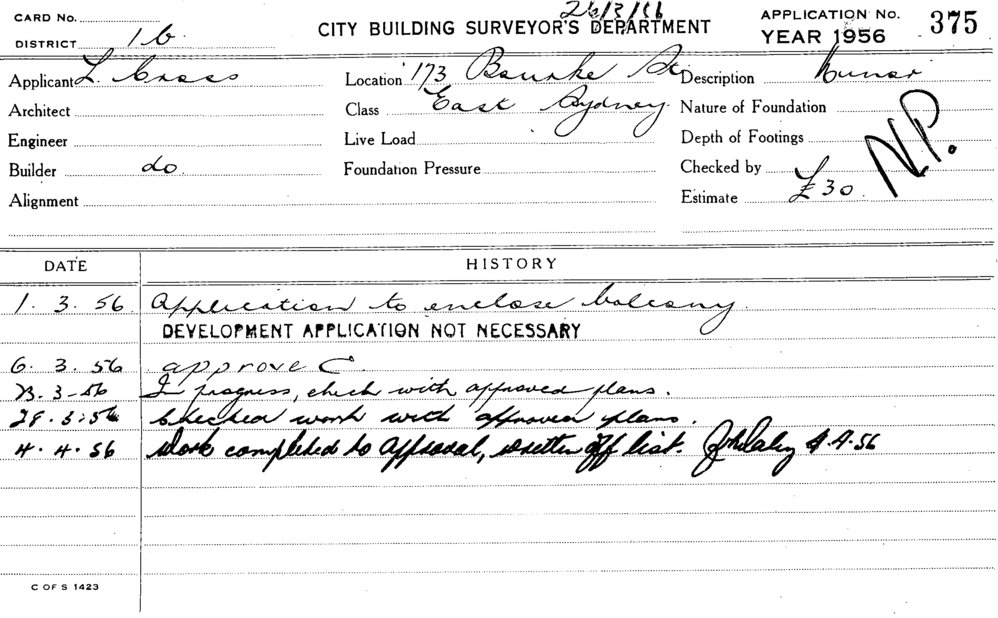 26/3/56
CARD No.
CITY BUILDING SURVEYOR'S DEPARTMENT
APPLICATION No. 375
DISTRICT 1b
YEAR 1956
Applicant L. Cross Location 173 Bourke St Description Minor
Architect Class East Sydney. Nature of Foundation
Engineer Live Load Depth of Footings
Builder do. Foundation Pressure Checked by
Alignment Estimate £30
N.P.
DATE HISTORY
1. 3. 56 Application to enclose balcony.
DEVELOPMENT APPLICATION NOT NECESSARY
6. 3. 56 approve C
23-3-56 In progress, check with approved plans.
28.3.56 Checked work with approved plans.
4. 4. 56 Work completed to approval, written off list. 4.4.56
C OF S 1423